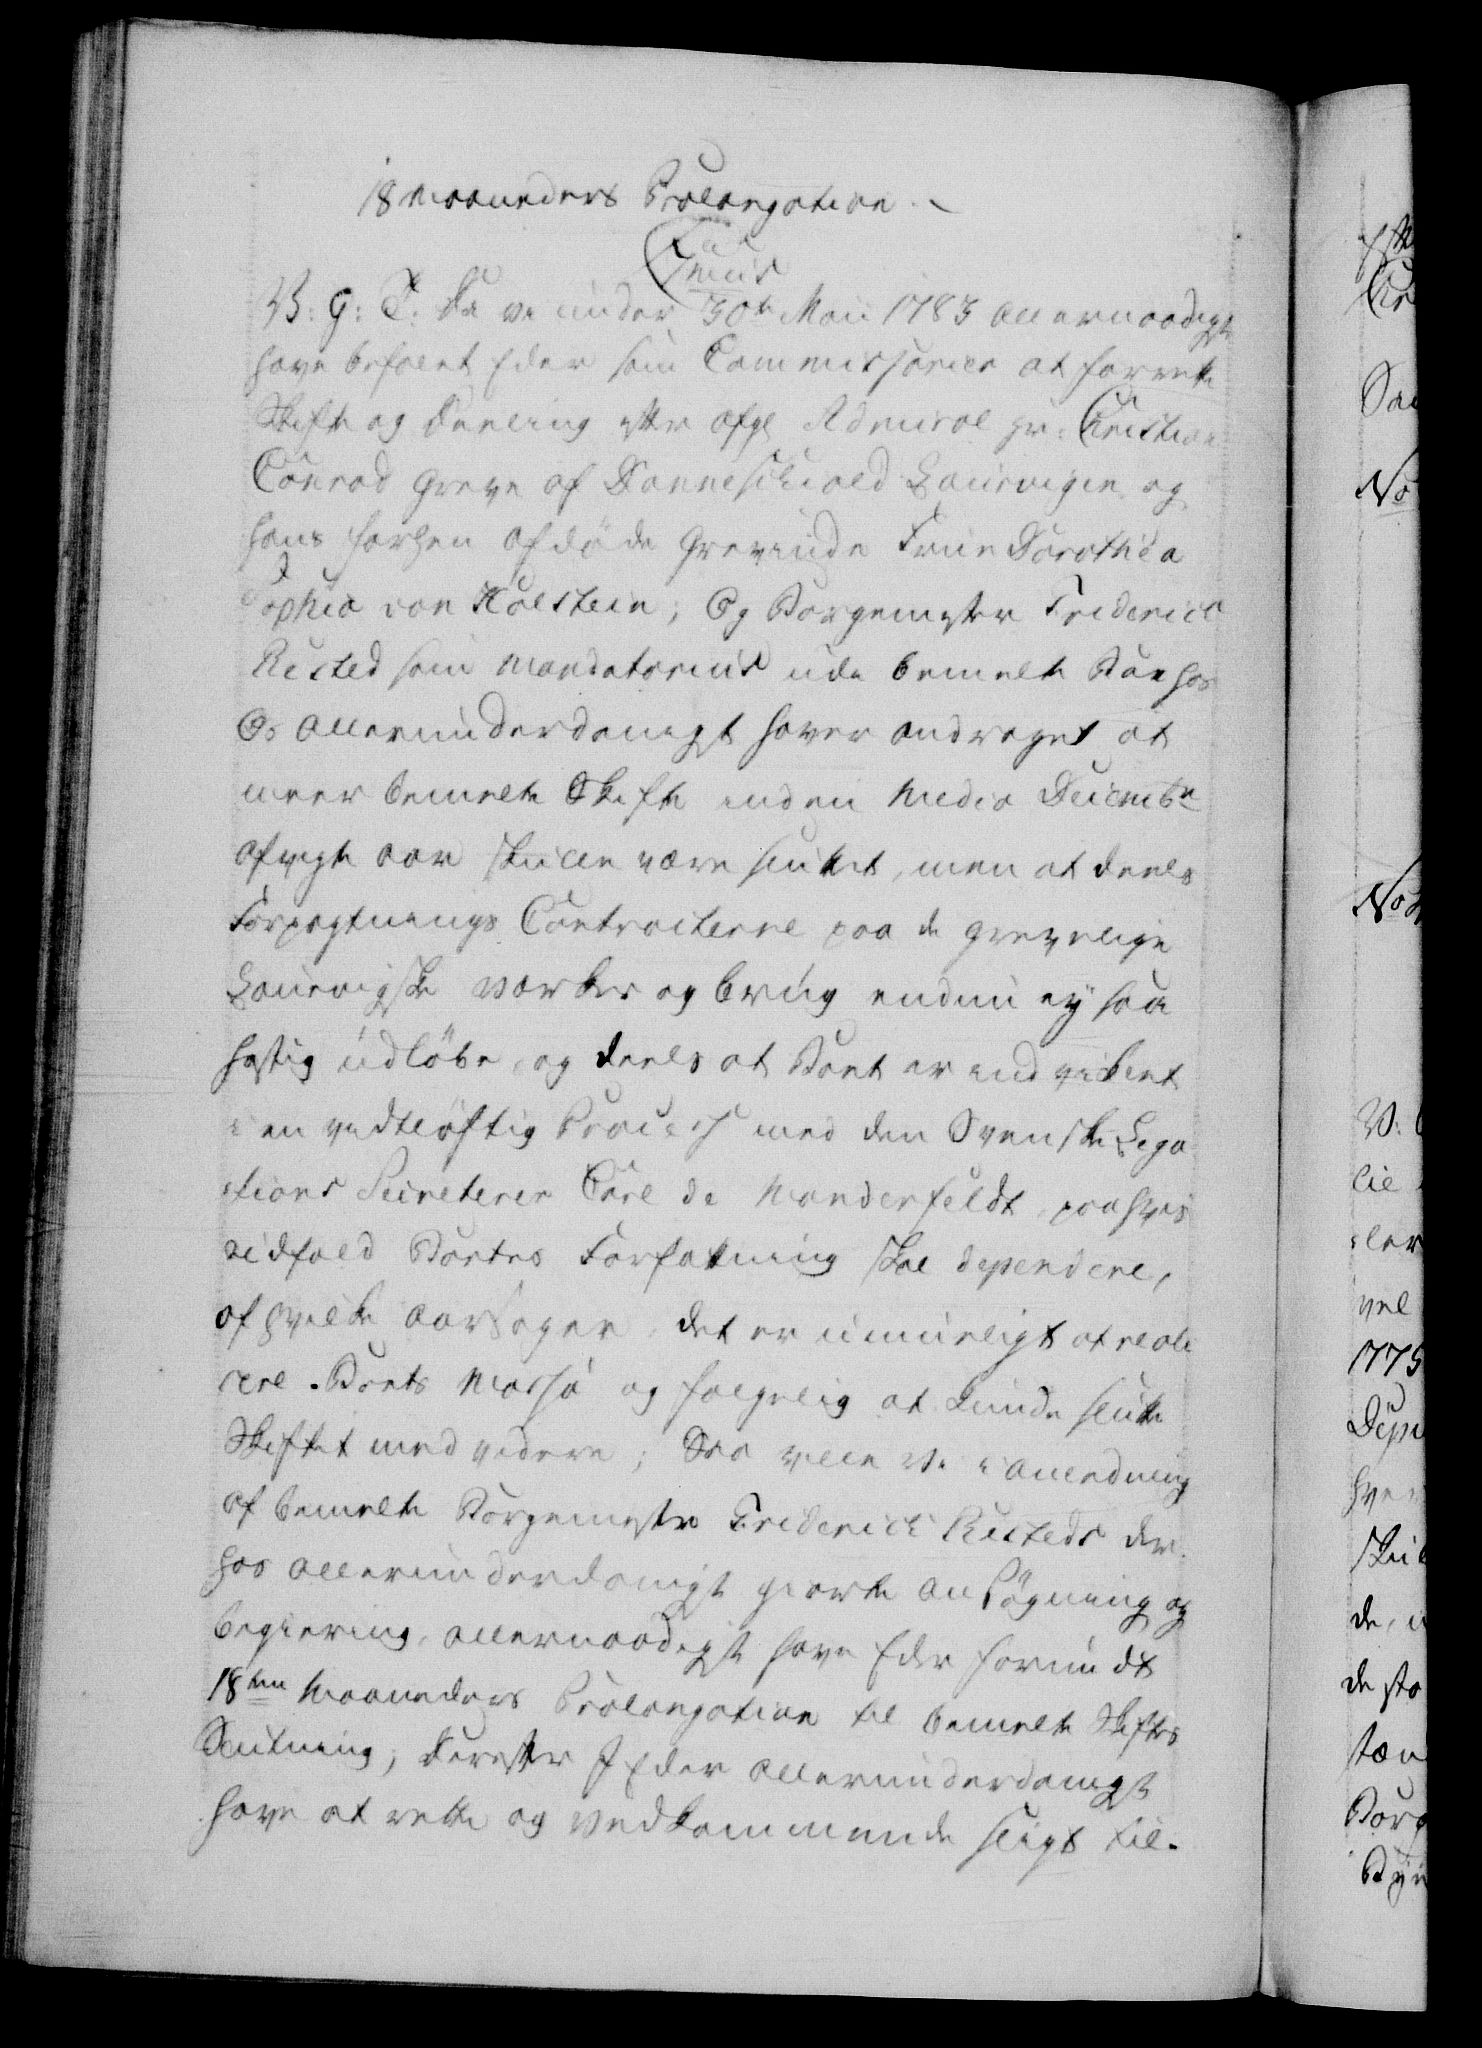 18 Maaneders Prolongation.
V: G: T: Da vi under 30te Maii 1783 allernaadigst
have befalet Eder som Commissarier at forrette
Skifte og Deeling efter afg. Admiral Hr: Christian
Conrad Greve af Danneschiold Laurvigen og
hans forhen afdøde Grevinde Frue Dorothea
Sophia von Holstein; Og Borgemester Friderich
Risted som Mandatarius udi bemelte Boe hos
Os allerunderdanigst haver andraget at
meer bemelte Skifte inden Medio Decembr
afvigte aar skulle være sluttet, men at deels
Forpagtnings Contracterne paa de grevelige
Laurvigske værker og brug endnu ey saa
hastig udløbe, og deels at Boet er indviklet
i en vidtløftig Process med den Svenske Lega
tions Secreterer Carl de Manderfeldt, paa hvis
udfald Boets Forfatning skal dependere,
af hvilke aarsager det er umueligt at reali
cere Boets Massa og følgelig at kunde slutte
Skiftet med videre; Saa ville Vi i anledning
af bemelte Borgemester Friderich Risteds der
hos allerunderdanigst giorte Ansøgning og
begiering, allernaadigst have Eder forundt
18ten Maaneders Prolongation til bemelte Skiftes
Slutning; Derefter I Eder allerunderdanigst
have at rette og vedkommende sligt til-